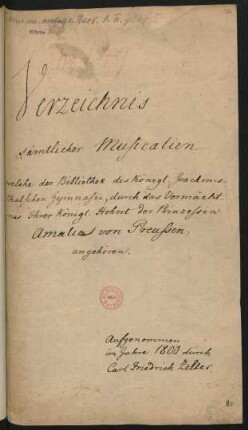 Verzeichnis
sämtlicher Musicalien
welche der Bibliothek des Königl. Joachims-
thalschen Gymnasii, durch das Vermächt-
nis Ihrer Königl. Hoheit der Prinzessin
Amalia von Preussen,
angehören.
Aufgenommen
im Jahre 1800 durch
Carl Friedrich Zelter.